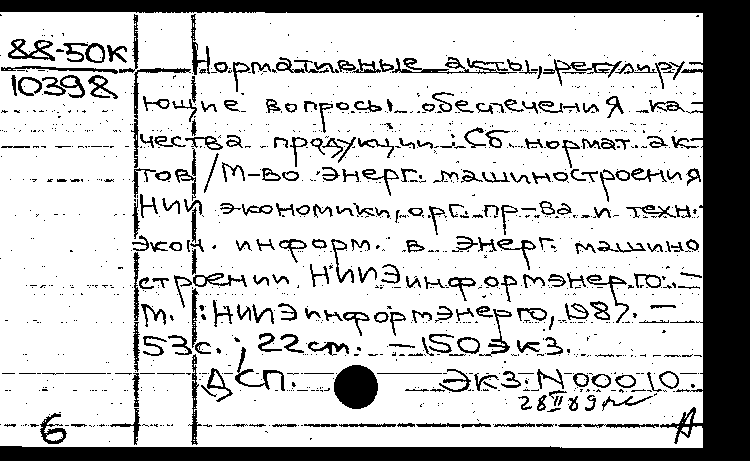 88-50К
10398
Нормативные акты, регулиру-
ющие вопросы обеспечения ка-
чества продукции : Сб. нормат. ак-
тов / М-во энерг. машиностроения
НИИ экономики, орг. пр-ва и техн.-
экон. информ. в энерг. машино
строении НИИЭинформэнерго. –
М. : НИИЭинформэнерго, 1987. –
53 с. ; 22 см. – 150 экз.
ДСП. Экз. N 00010.
28 II 89
6 А